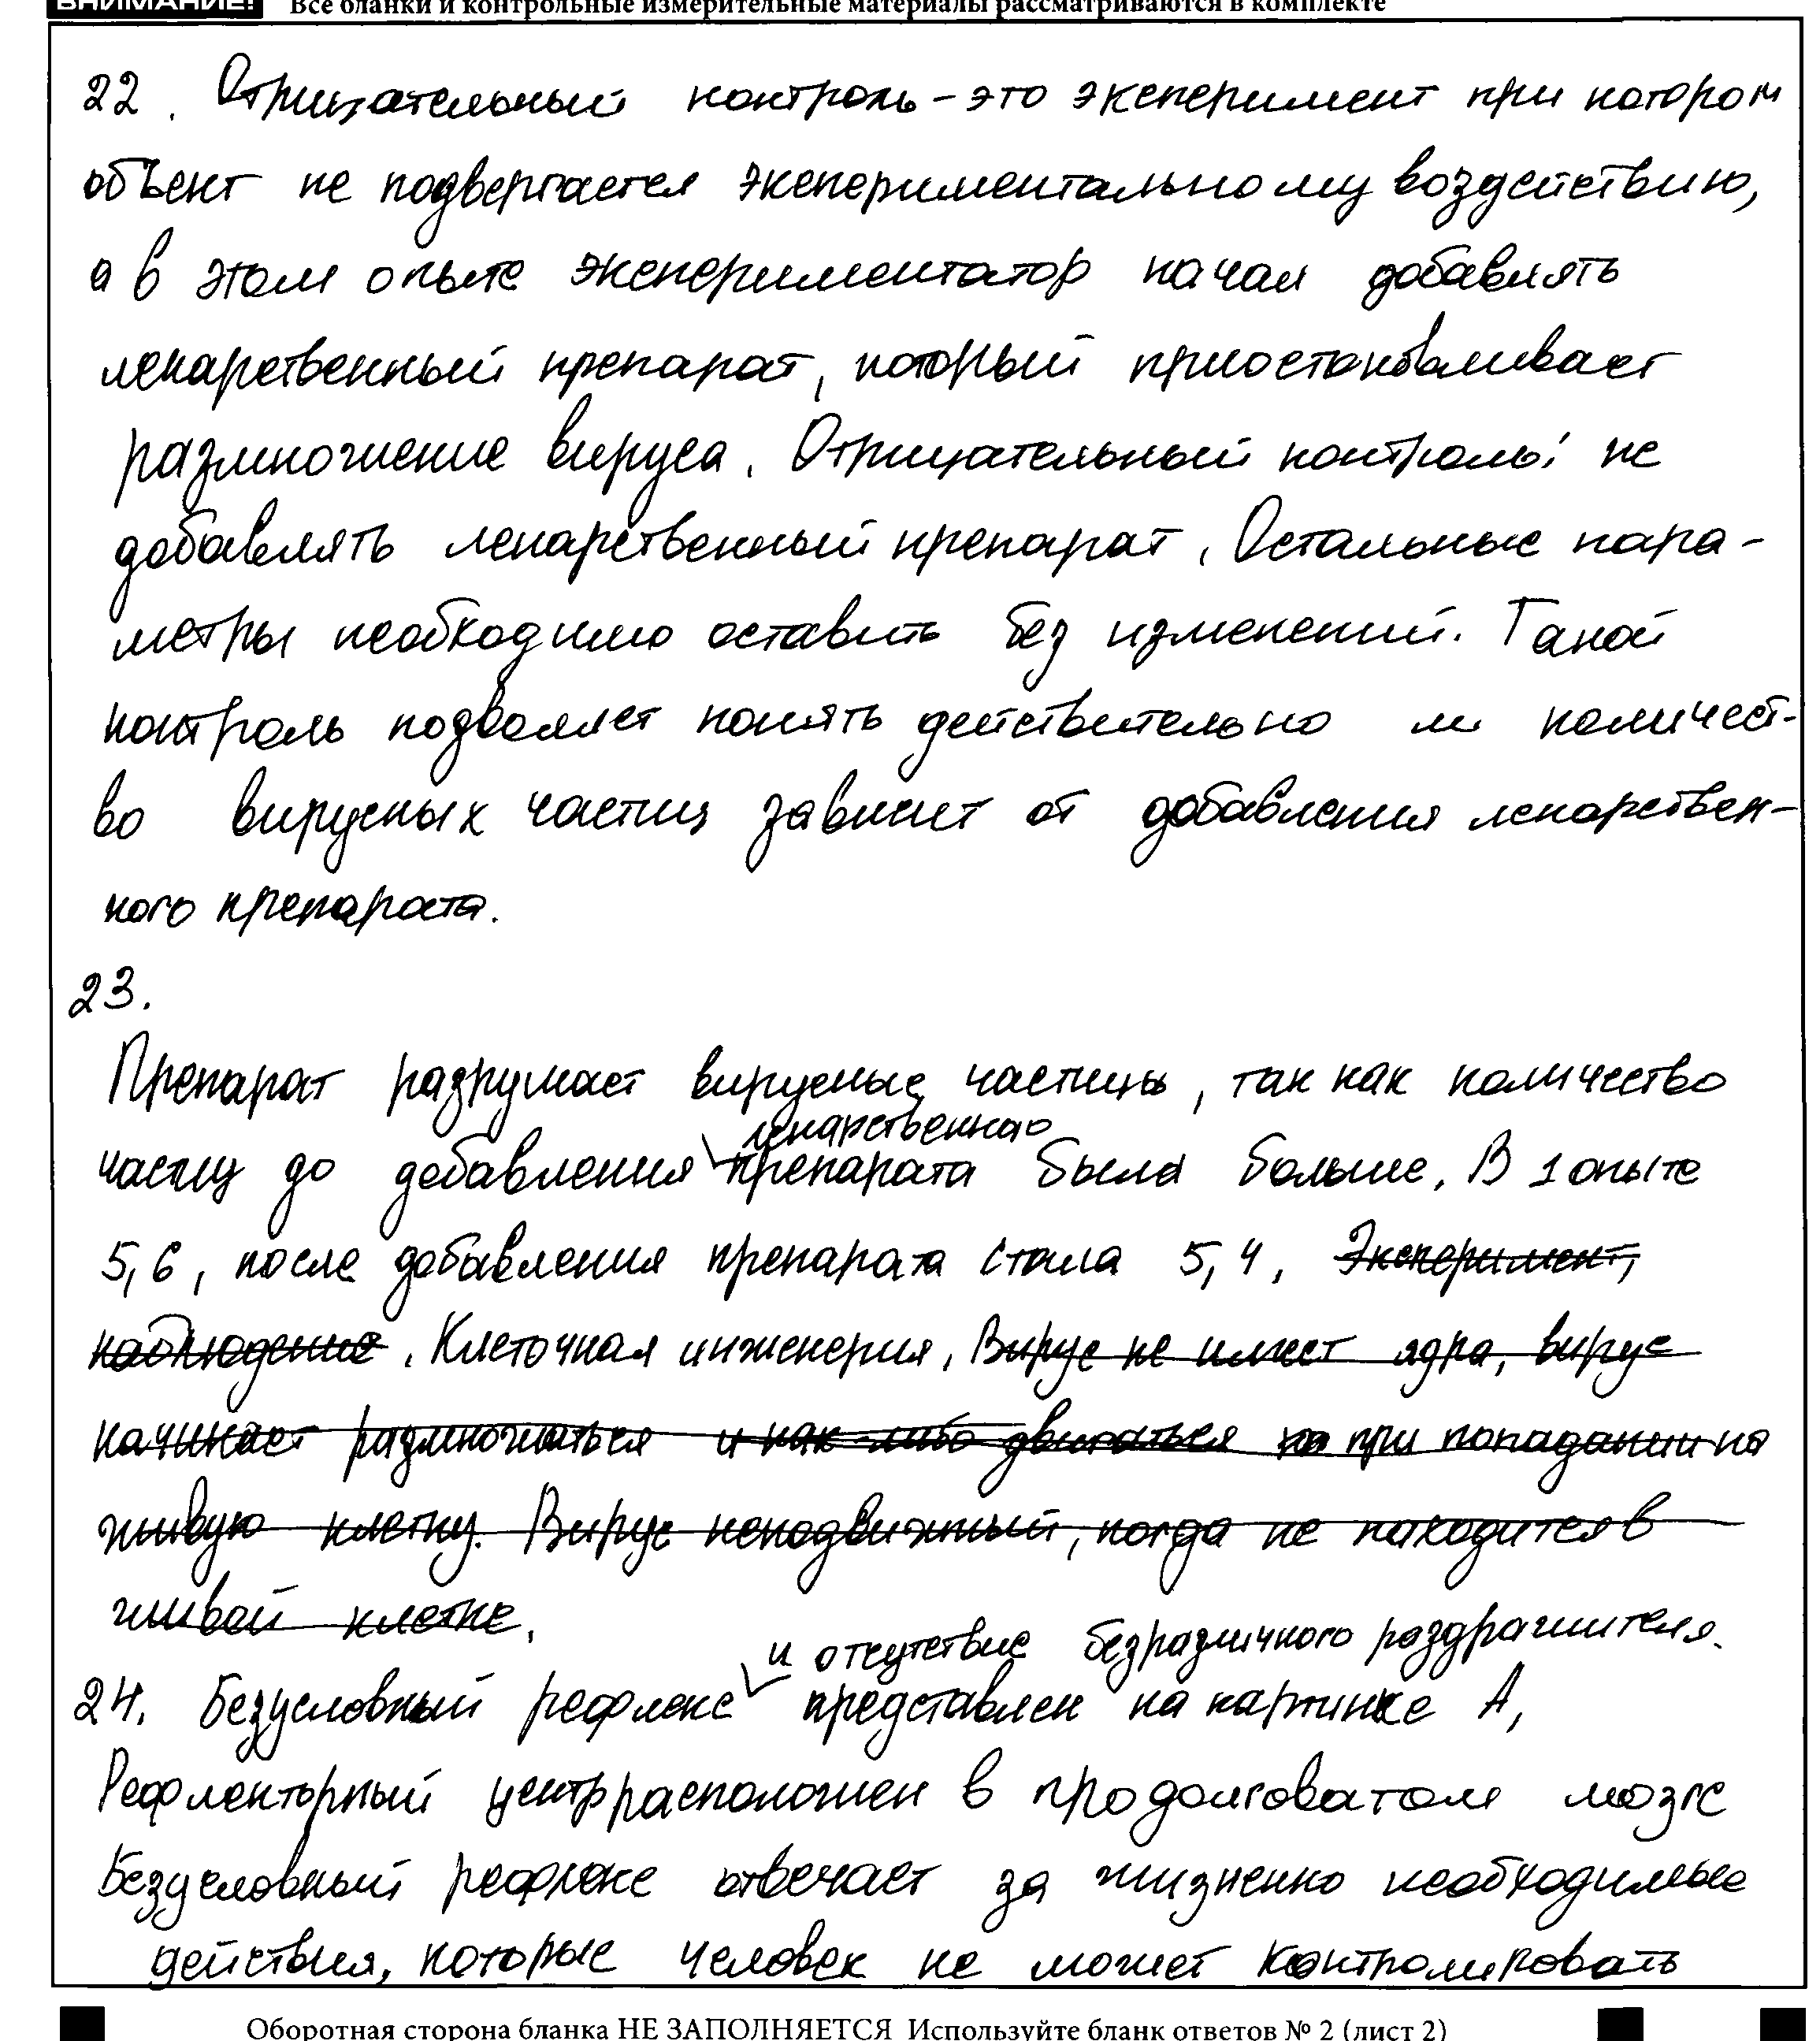 ВНИМАНИЕ! Все бланки и контрольные измерительные материалы рассматриваются в комплекте
22. Отрицательный контроль - это эксперимент при котором
объект не подвергается экспериментальному воздействию,
а в этом опыте экспериментатор начал добавлять
лекарственный препарат, который приостанавливает
размножение вируса. Отрицательный контроль: не
добавлять лекарственный препарат. Остальные пара-
метры необходимо оставить без изменений. Такой
контроль позволяет понять действительно ли количест-
во вирусных частиц зависит от добавления лекарствен-
ного препарата.
23.
Препарат разрушает вирусные частицы, так как количество
лекарственнао
частиц до добавления препарата была больше. В 1 опыте
5,6, после добавления препарата стала 5,4. Эксперимент,
наблюдение. Клеточная инженерия. Вирус не имеет ядра, вирус
начинает размножаться и как-либо двигаться на при попадании на
живую клетку. Вирус неподвижный, когда не находится в
живой клетке.
и отсутствие безразличного раздражителя.
24. Безусловный рефлекс представлен на картинке А,
Рефлекторный центр расположен в продолговатом мозге
Безусловный рефлекс отвечает за жизненно необходимые
действия, которые человек не может контролировать
Оборотная сторона бланка НЕ ЗАПОЛНЯЕТСЯ Используйте бланк ответов № 2 (лист 2)